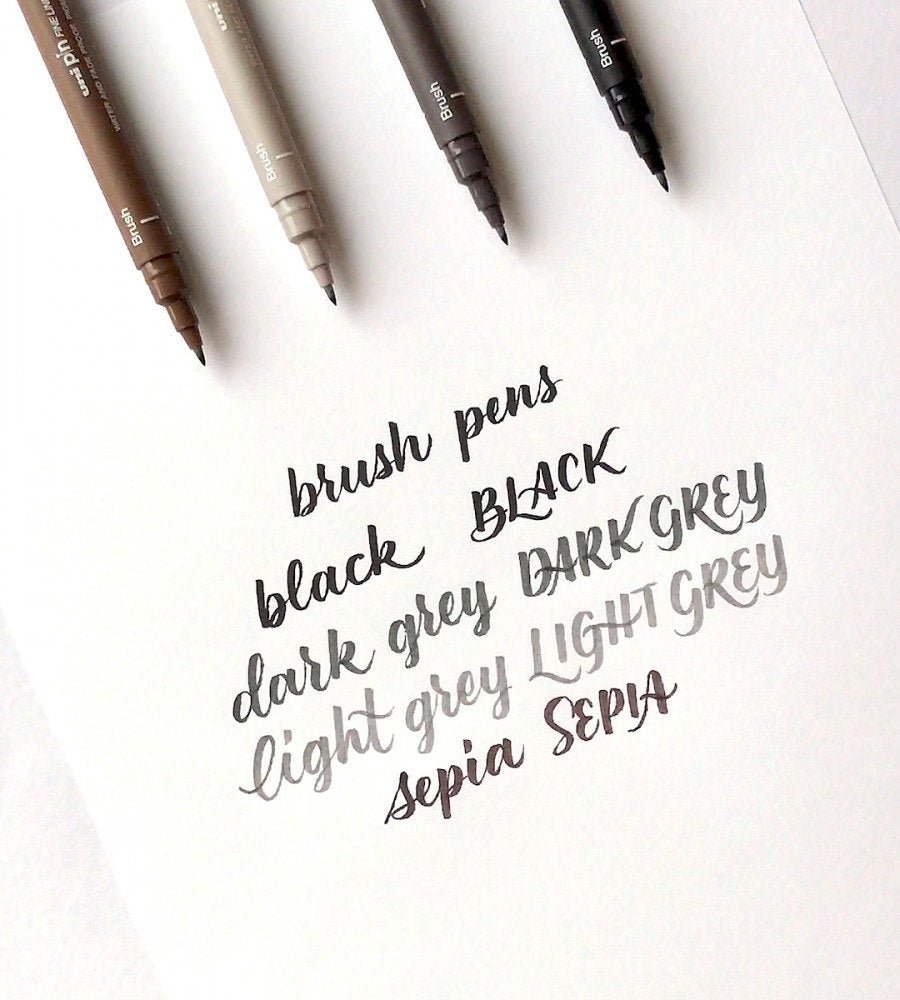 uni pin FINE LINE
WATER AND FADE PROOF
Brush
uni
Brush
Brush
Brush
brush pens
black BLACK
dark grey DARK GREY
light grey LIGHT GREY
sepia SEPIA